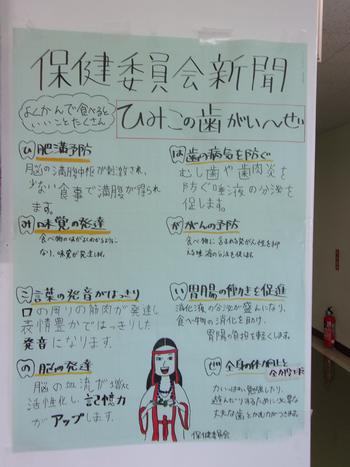 保健委員会新聞
よくかんで食べると
いいことたくさん
ひみこの歯がい～ぜ
ひ 肥満予防
脳の満腹中枢が刺激され、
少ない食事で満腹が得られ
ます。
み 味覚の発達
食べ物の味がよくわかるように
なり、味覚が発達します。
こ 言葉の発音がはっきり
口の周りの筋肉が発達し
表情豊かではっきりした
発音になります。
の 脳の発達
脳の血流が増え
活性化し、記憶力
がアップします。
は 歯の病気を防ぐ
むし歯や歯肉炎を
防ぐ唾液の分泌を
促します。
が がんの予防
食べ物に含まれる発がん性を抑
える唾液の分泌を促す。
い 胃腸の働きを促進
消化液の分泌が盛んになり、
食べ物の消化を助け、
胃腸の負担を軽くします。
ぜ 全身の体力向上と
全力投球
力いっぱい勉強したり、
遊んだりするために
丈夫な歯とかむ力がつきます。
保健委員会